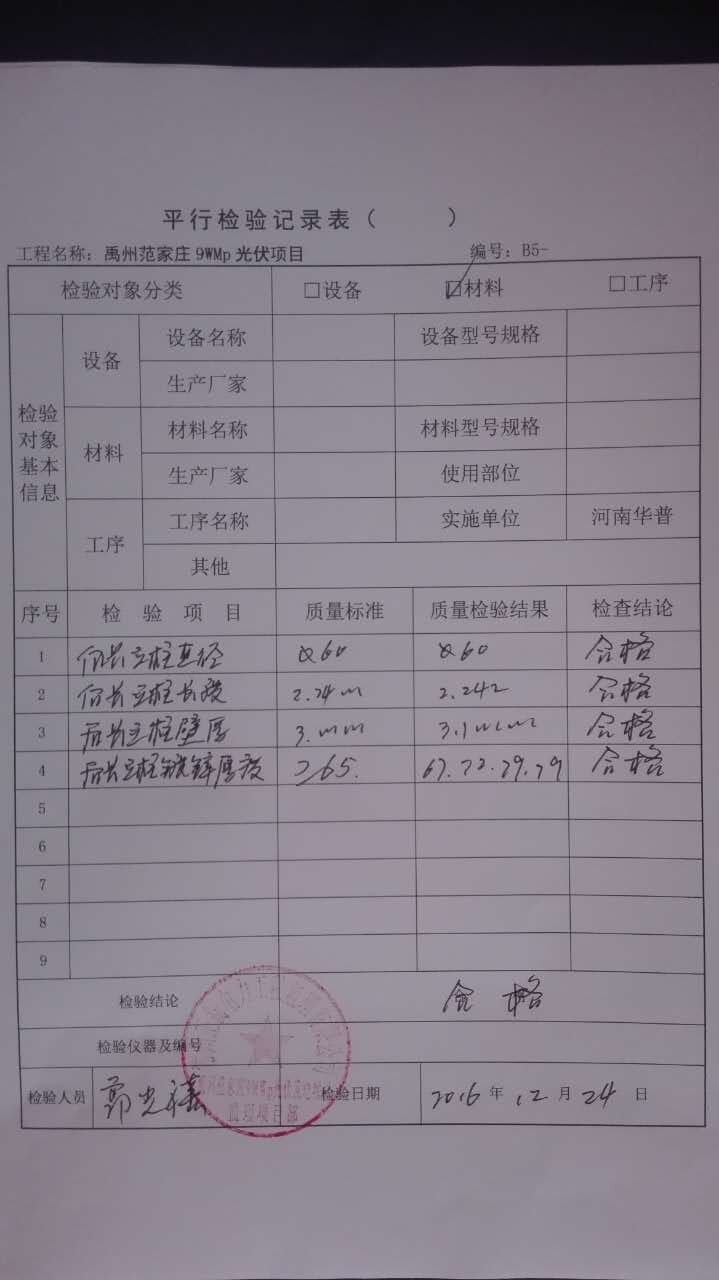 平行检验记录表（ ）
工程名称：禹州范家庄9WMp光伏项目 编号：B5-
检验对象分类 □设备 ☑材料 □工序
检验对象基本信息
设备 设备名称 设备型号规格
生产厂家
材料 材料名称 材料型号规格
生产厂家 使用部位
工序 工序名称 实施单位 河南华普
其他
序号 检验项目 质量标准 质量检验结果 检查结论
1 立柱直径 60 60 合格
2 立柱长度 2.24m 2.242 合格
3 立柱壁厚 3.mm 3.1mm 合格
4 立柱镀锌厚度 ≥65. 67.72.79.79 合格
5
6
7
8
9
检验结论 合格
检验仪器及编号
检验人员 郭光 检验日期 2016年12月24日
监理项目部